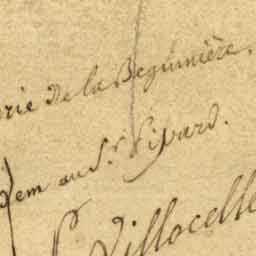 rie de la Beguinière.
Dem au S.r Pipard.
Villocelle